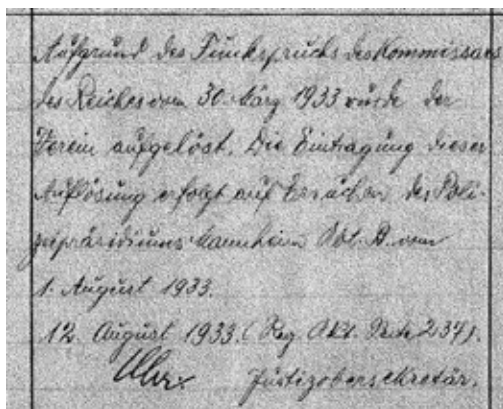 Aufgrund des Funkspruchs des Kommissars
des Reiches vom 30. März 1933 wurde der
Verein aufgelöst. Die Eintragung dieser
Auflösung erfolgt auf Ersuchen des Poli-
zeipräsidiums Mannheim Abt. A. vom
1. August 1933.
12. August 1933. (Reg. Akt. Seite 234).
Justizobersekretär.